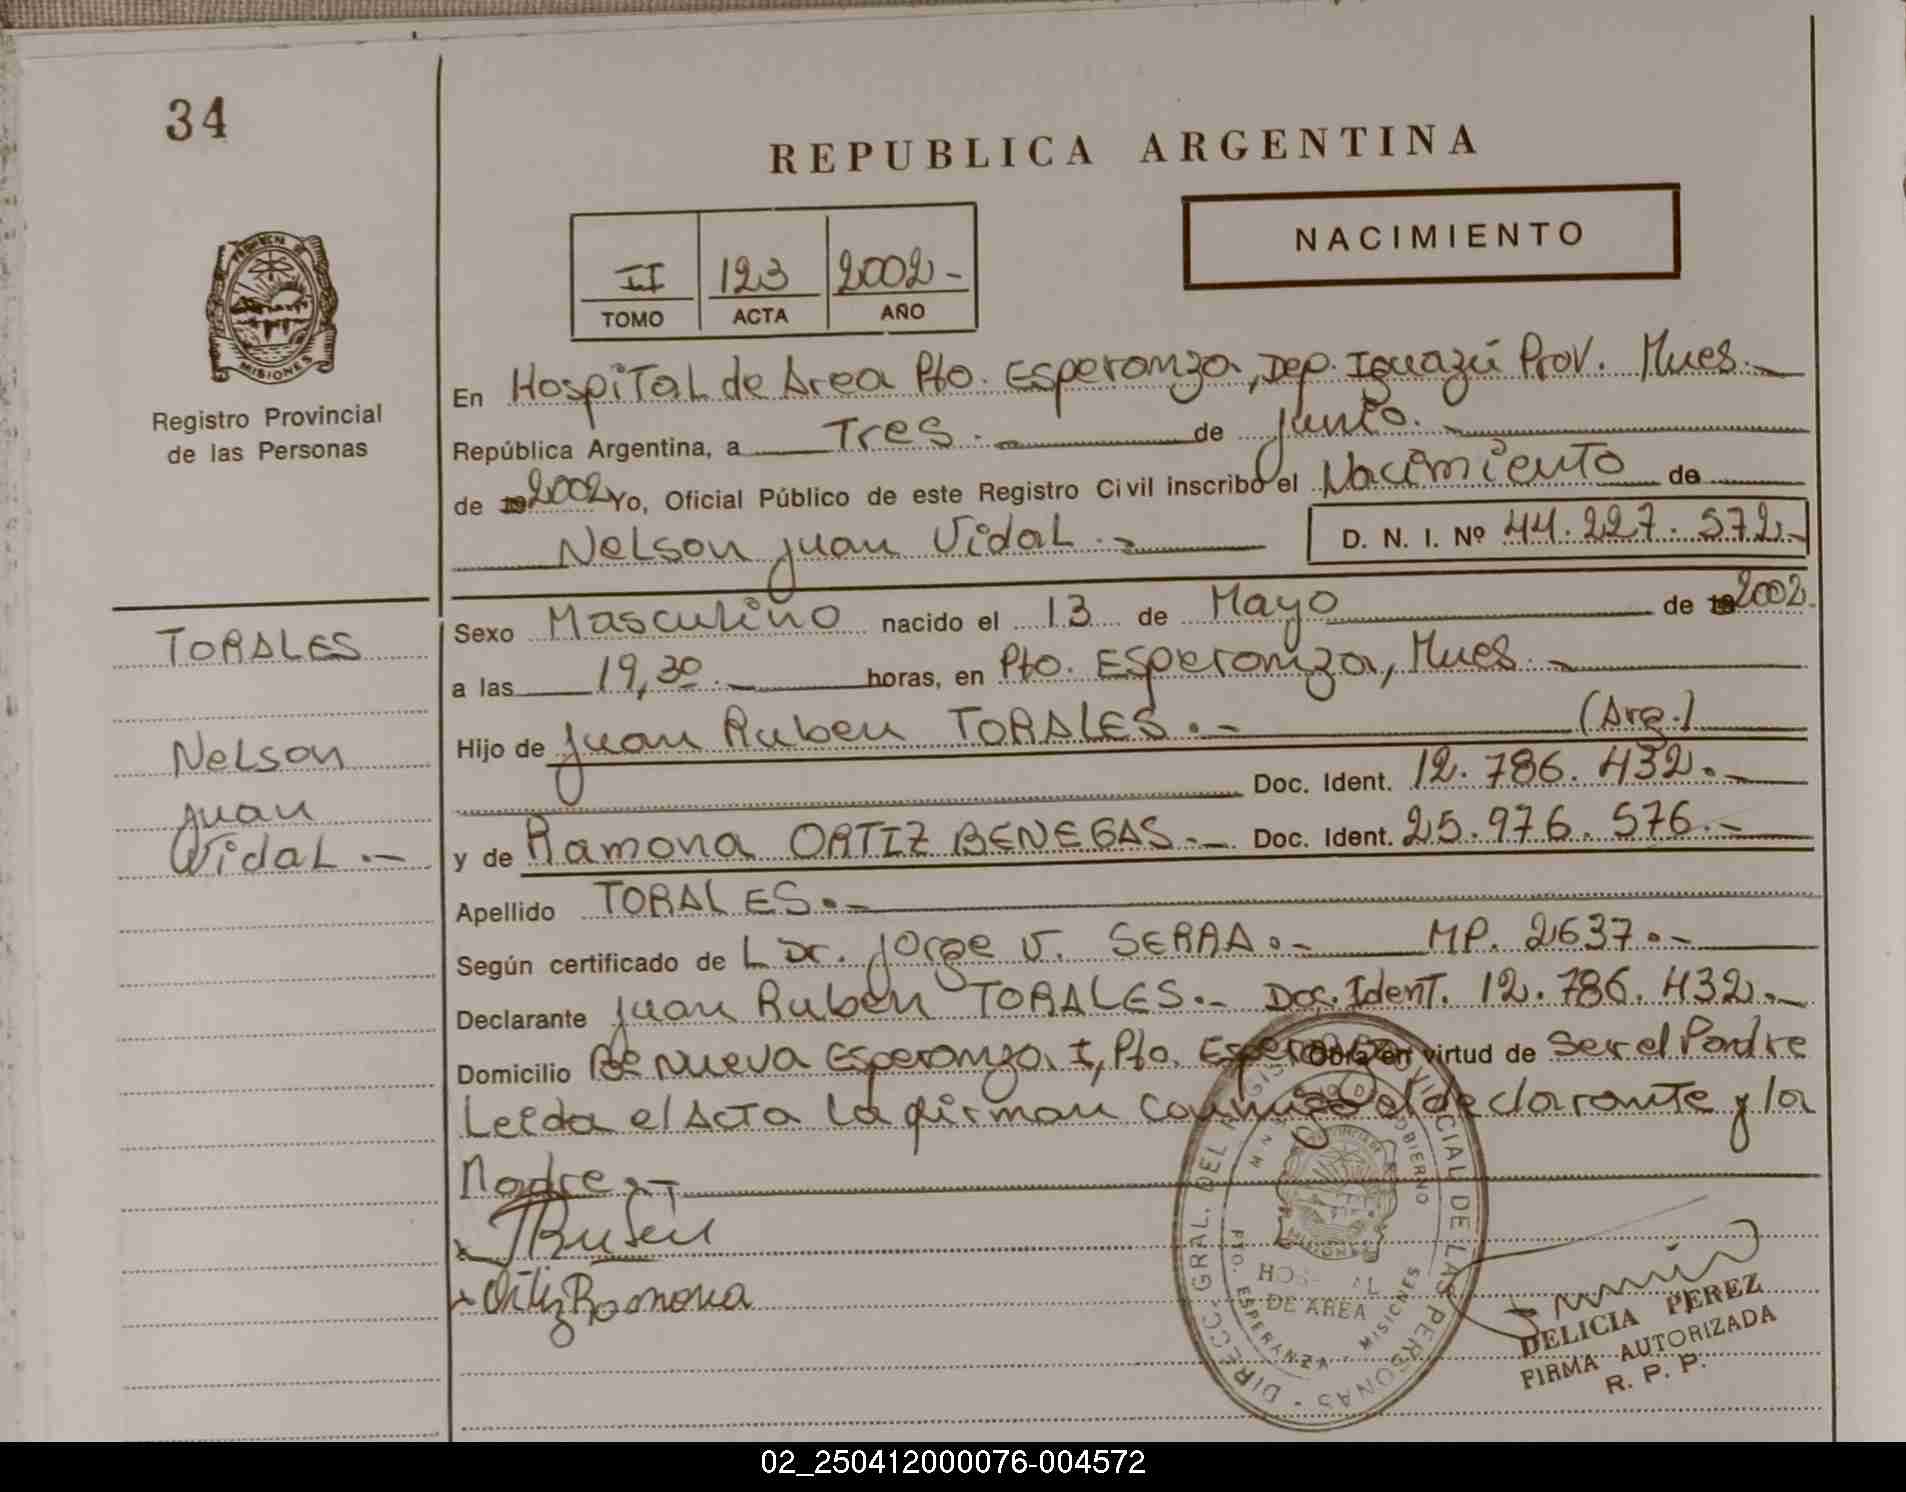 34
REPUBLICA ARGENTINA
NACIMIENTO
II 123 2002-
TOMO ACTA AÑO
PROVINCIA DE
MISIONES
Registro Provincial
de las Personas
En Hospital de Area Pto. Esperanza, Dep. Iguazú Prov. Mnes.-
República Argentina, a Tres.- de junio.-
de 19 2002 Yo, Oficial Público de este Registro Civil inscribo el Nacimiento de
Nelson juan Vidal.- D. N. I. Nº 44.227.572.-
Sexo Masculino nacido el 13 de Mayo de 19 2002.
a las 19,30.- horas, en Pto. Esperanza, Mnes.-
Hijo de juan Ruben TORALES.- (Arg.)
Doc. Ident. 12.786.432.-
y de Ramona ORTIZ BENEGAS.- Doc. Ident. 25.976.576.-
Apellido TORALES.-
Según certificado de L Dr. jorge V. SERRA.- MP. 2637.-
Declarante juan Ruben TORALES.- Doc. Ident. 12.786.432.-
Domicilio Bº Nueva Esperanza I, Pto. Esperanza Obra en virtud de ser el Padre
Leida el Acta la firman conmigo el declarante y la
Madre.-
JRuben
Ortiz Ramona
TORALES
Nelson
juan
Vidal.-
DIRECC. GRAL. DEL REGISTRO PROVINCIAL DE LAS PERSONAS
MINISTERIO DE GOBIERNO
MISIONES
HOSPITAL
DE AREA
PTO. ESPERANZA - MISIONES
DELICIA PEREZ
FIRMA AUTORIZADA
R. P. P.
02_250412000076-004572